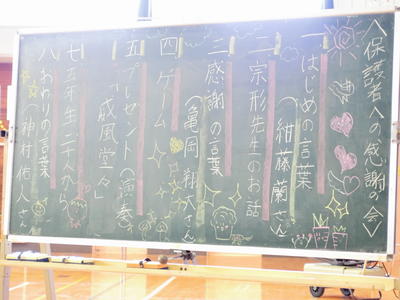 〈保護者への感謝の会〉
一 はじめの言葉
（紺藤蘭さん）
二 宗形先生のお話
三 感謝の言葉
（亀岡 翔大さん）
四 ゲーム
五 プレゼント（演奏）
「威風堂々」
七 五年生二人から
八 おわりの言葉
（神村佑人さん）